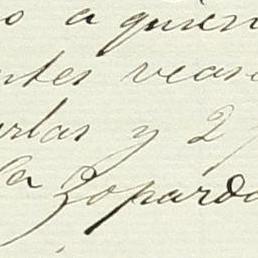 o a quien
ntes veas
arlas y 2
la Zoparda